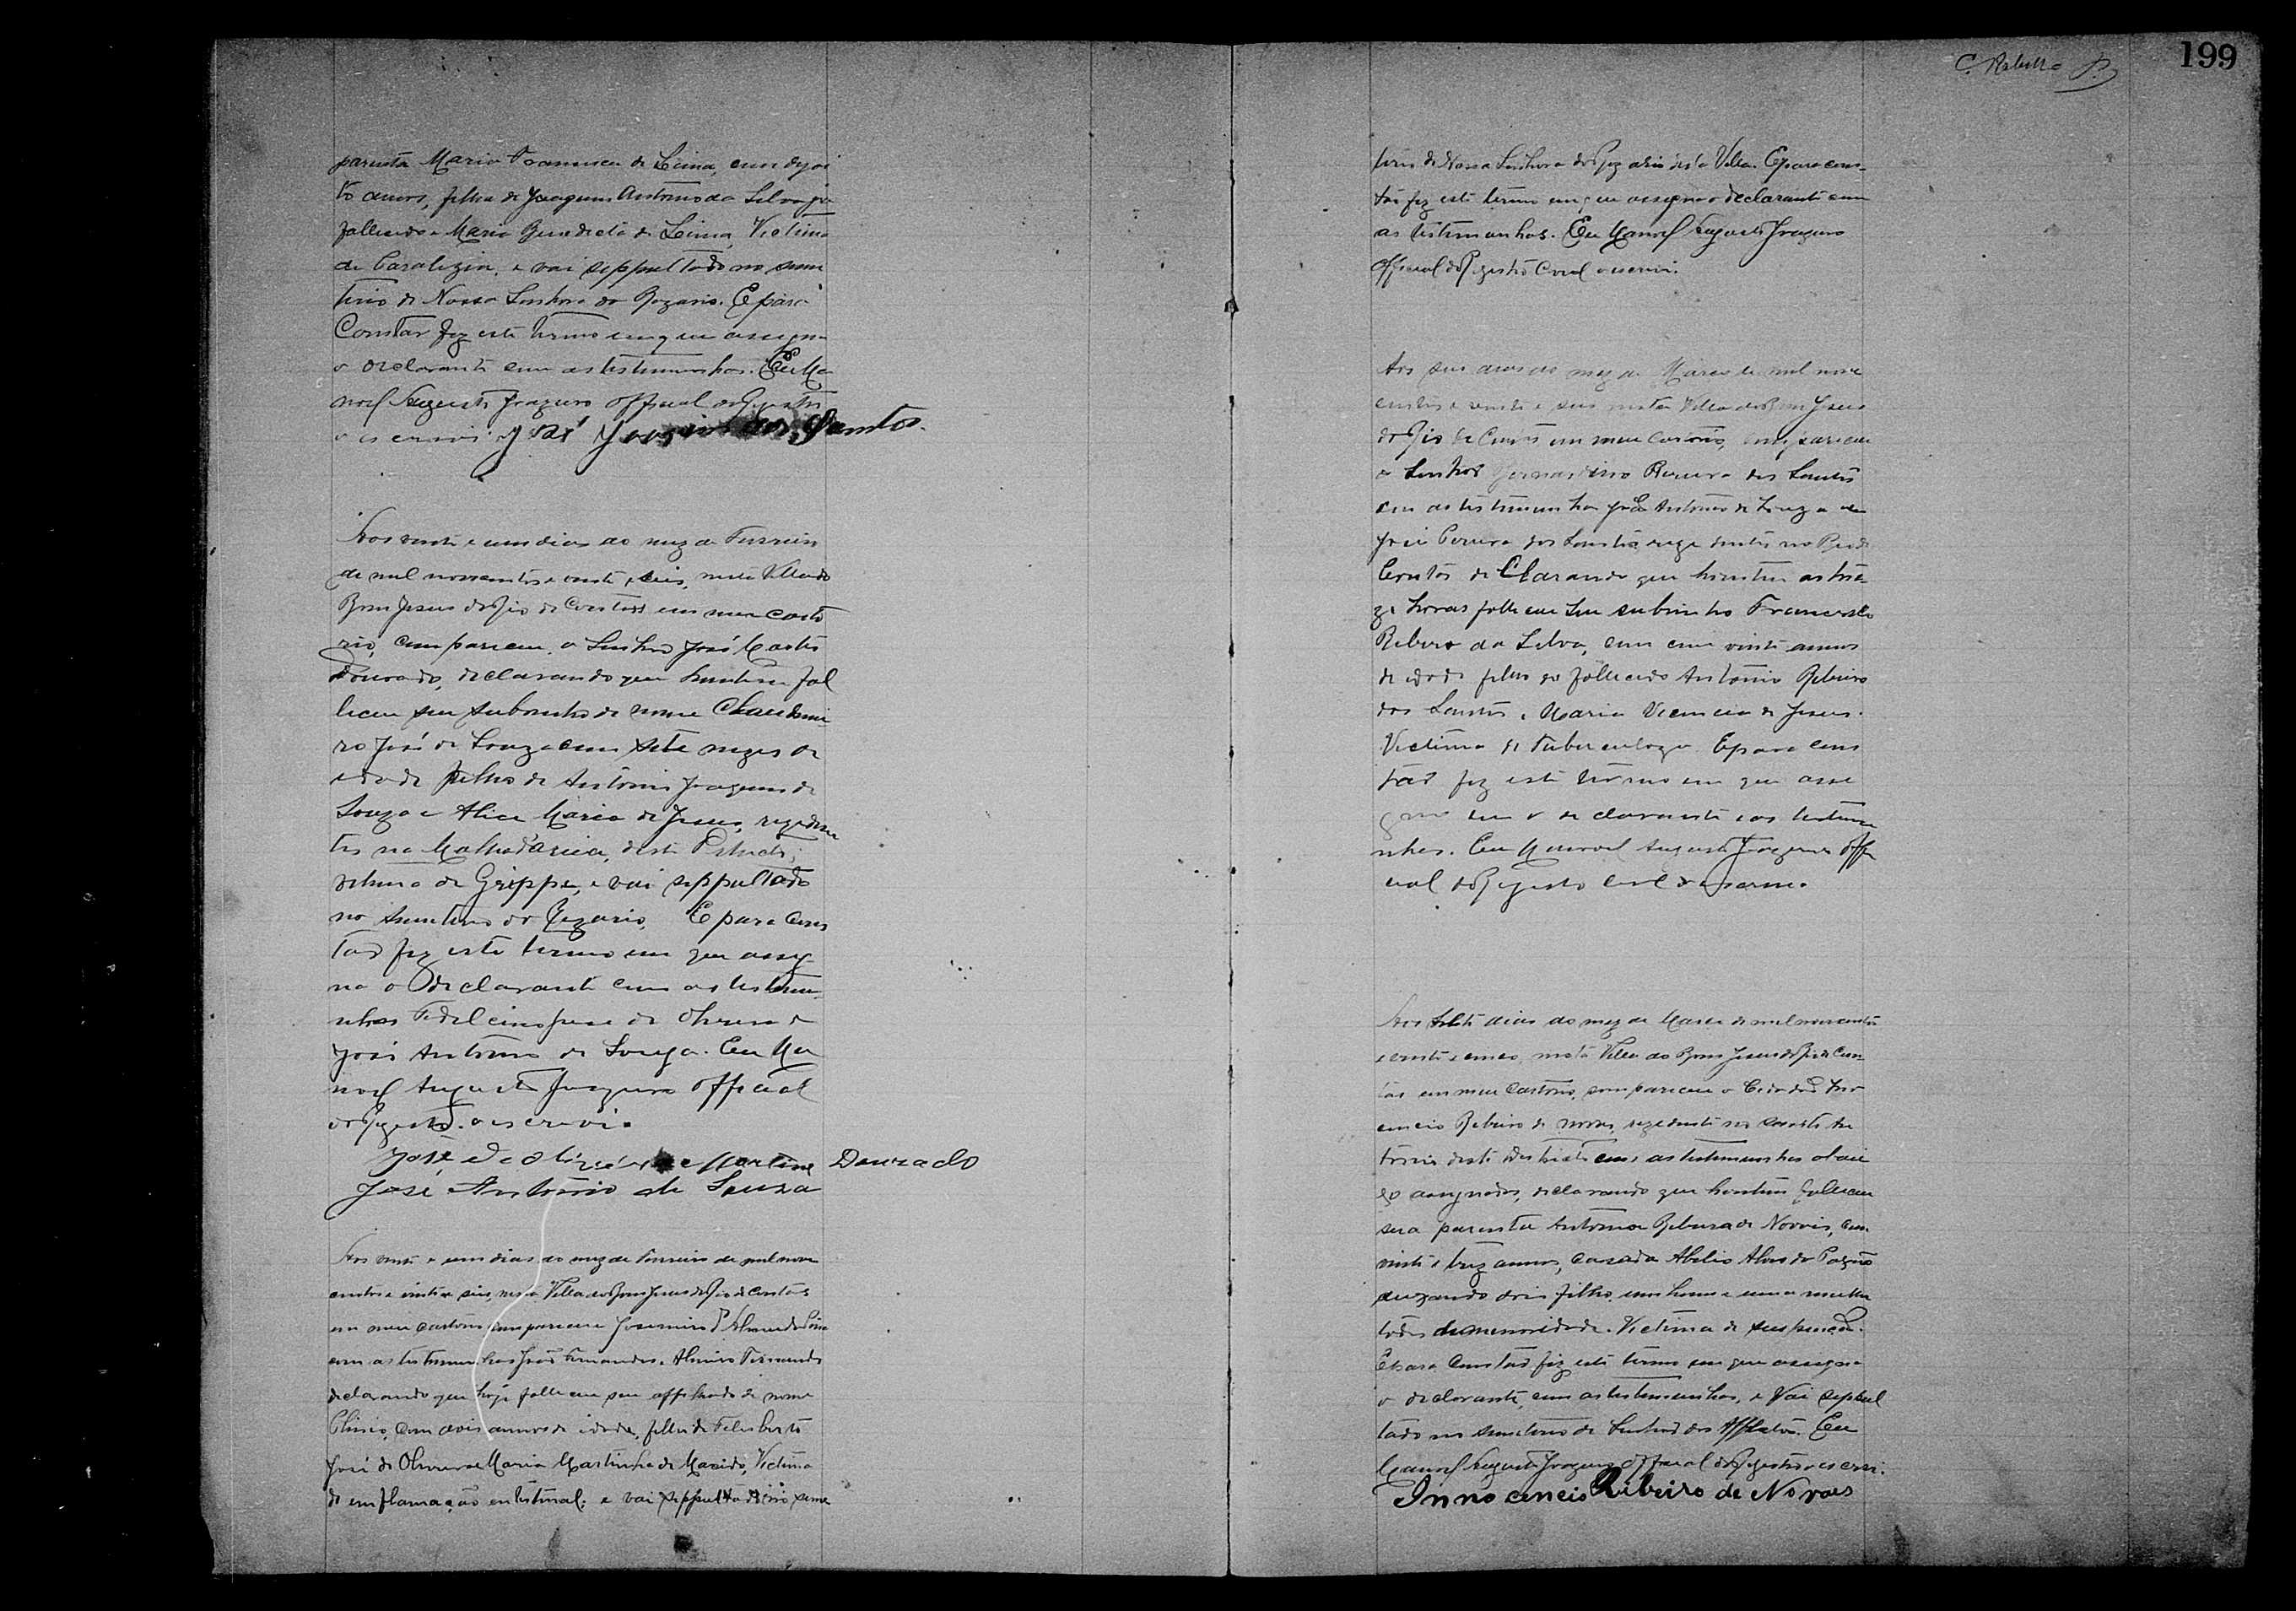 parenta Maria Francisca de Lima, com dezoi
to annos, filha de Joaquim Antonio da Silva ja
fallecido e Maria Benedicta de Lima, Victima
de Paralizia, e vai seppultado no seme
terio de Nossa Senhora do Rozario. E para
Constar fiz este termo em que assigna
o declarante com as testemunhas. Eu Ma
noel Augusto Official do Registro
o escrevi. José dos Santos
Aos vinte e um dias do mez de Fevereiro
de mil novecentos e vinte e seis, nesta Villa do
Bom Jesus do Rio de Contas em meu carto
rio, compareceu o Senhor José Martins
Dourado, declarando que hontem fal
leceu seu subrinho de nome Claudomi
ro José de Souza com sete mezes de
idade filho de Antonio Joaquim de
Souza e Alice Maria de Jesus, reziden
tes na Malhada areia, deste
victima de Grippe, e vai seppultado
no semeterio do Rozario. E para cons
tar fiz este termo em que assig
na o declarante com as testemu
nhas de Oliveira e
José Antonio de Souza. Eu Ma
noel Augusto Official
do Registro o escrevi.
José de Oliveira Martins Dourado
José Antonio de Souza
Aos vinte e um dias do mez de Fevereiro de mil nove
centos e vinte e seis, nesta Villa do Bom Jesus do Rio de Contas
em meu cartorio compareceu
com as testemunhas João Fernandes e Fernandes
declarando que hoje falleceu seu affilhado de nome
com dois annos de idade, filho de Felisberto
José de Oliveira e Maria Martinha de Macedo, Victima
de emflamação entestinal, e vai seppultado no seme
C. Rabello P. 199
terio de Nossa Senhora do Rozario desta Villa. E para cons
tar fiz este termo em que assigna o declarante com
as testemunhas. Eu Manoel Augusto
Official do Registro Civil o escrevi.
Aos seis dias do mez de Março de mil nove
centos e vinte e seis nesta Villa do Bom Jesus
do Rio de Contas em meu Cartorio, compareceu
o Senhor Bernardino Pereira dos Santos
com as testemunhas José Antonio de Souza e
José Pereira dos Santos rezidentes no
declarando que hontem as tre
ze horas falleceu seu subrinho Francisco
Ribeiro da Silva, com vinte annos
de idade filho do fallecido Antonio Ribeiro
dos Santos e Maria Vicencia de Jesus.
Victima de Tuberculoze. E para cons
tar fiz este termo em que assi
gna o declarante e as testemu
nhas. Eu Manoel Augusto Offi
cial do Registro Civil o escrevi.
Aos sete dias do mez de Março de mil novecentos
e vinte e nesta Villa do Bom Jesus do Rio de Con
tas em meu Cartorio, compareceu o Cidadão Inno
cencio Ribeiro de Novaes, rezidente no
deste Districto com as testemunhas abaie
xo assignados, declarando que hontem falleceu
sua parenta Antonia Ribeira de Novais, com
vinte e trez annos, cazada Abilio Alves da
deixando dois filho, um homem e uma mulher
todos de menoridade. Victima de suspenção.
E para Constar fiz este termo em que assigna
o declarante, com as testemunhas, e Vai seppul
tado no semeterio de Senhor dos Afflictos. Eu
Manoel Augusto Official do Registro o escrevi.
Innocencio Ribeiro de Novaes